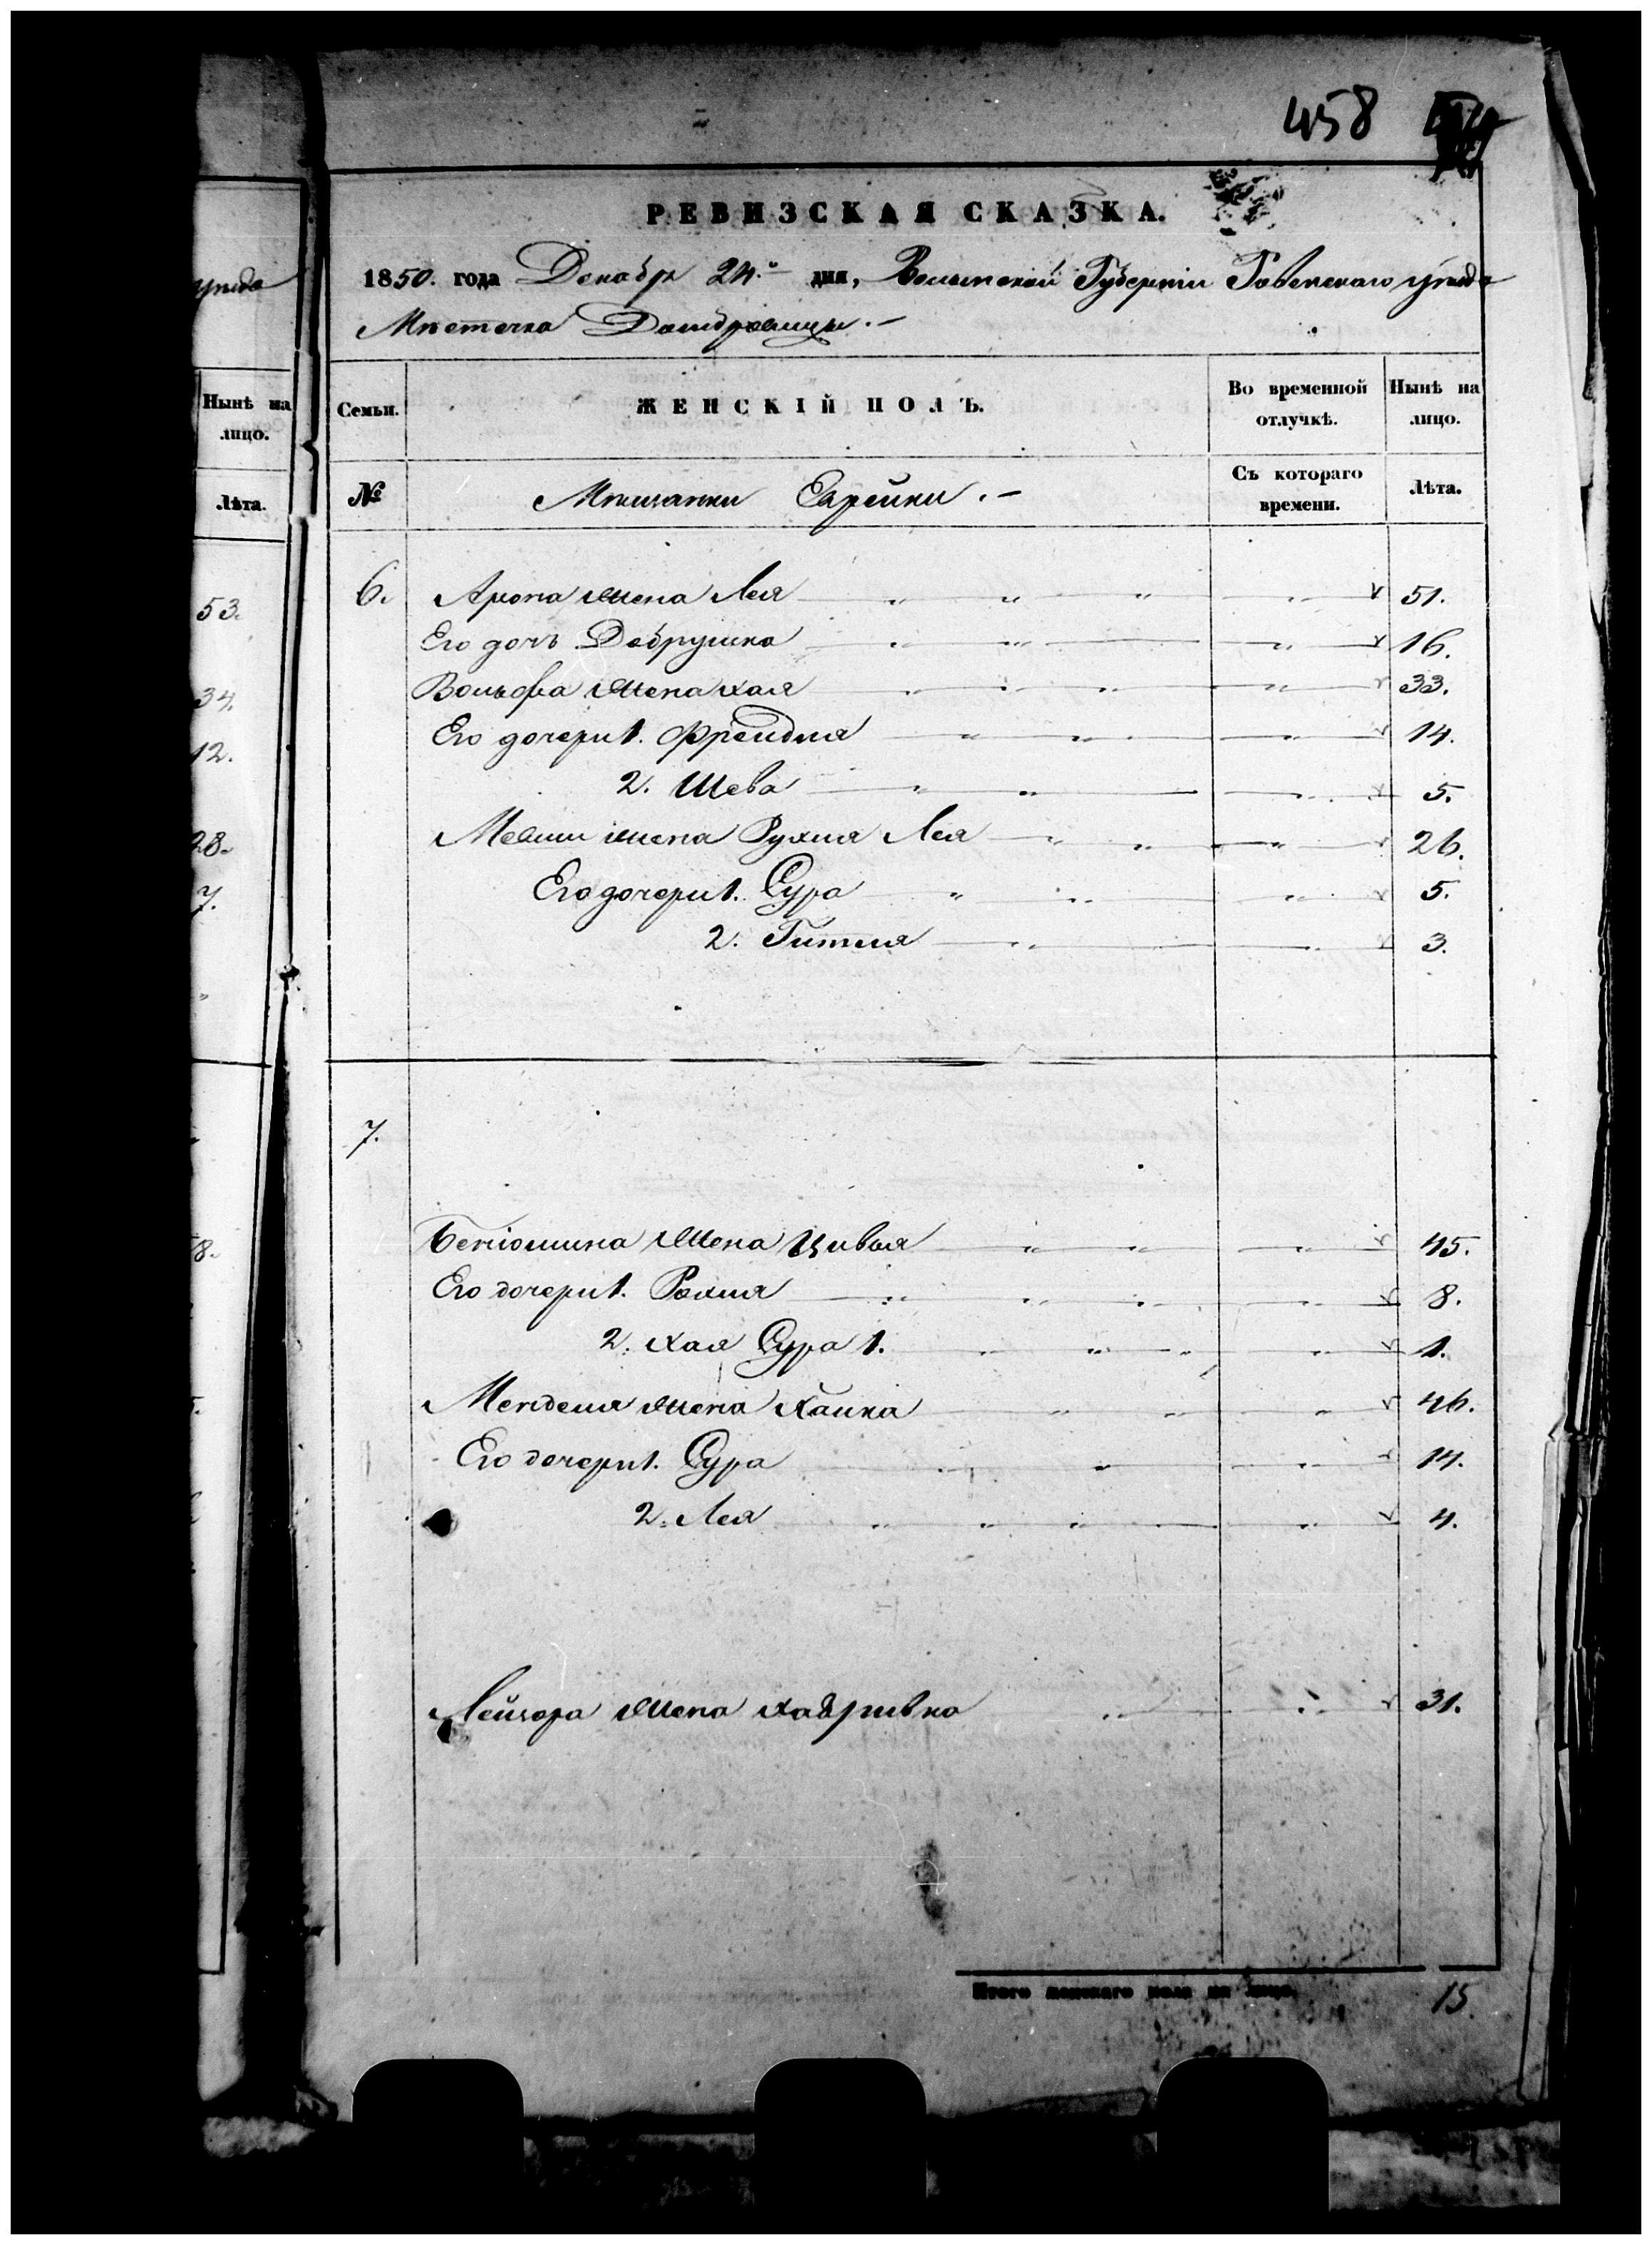 458
РЕВИЗСКАЯ СКАЗКА.
1850. года Декабр 24.го дня, Волынской Губерніи Ровенскаго уѣзда
Мѣстечка Домбровицы.
уѣзда
Семьи. ЖЕНСКІЙ ПОЛЪ. Во временной отлучкѣ. Нынѣ на лицо.
№ Мѣщанки Еврейки. Съ котораго времени. Лѣта.
Нынѣ на
лицо.
Лѣта.
53.
34.
12.
28.
7.
8.
6. Арона жена Лея 51.
Его дочь Добрушка 16.
Вольфа жена Хая 33.
Его дочери 1. Фрейдля 14.
2. Шева 5.
Мовши жена Рухля Лея 26.
Его дочери 1. Сура 5.
2. Гитля 3.
7.
Беніомина жена Цивья 45.
Его дочери 1. Рохля 8.
2. Хая Сура 1. 1.
Менделя жена Хайка 46.
Его дочери 1. Сура 14.
2. Лея 4.
Лейзора жена 31.
Итого женскаго пола на лицо 15